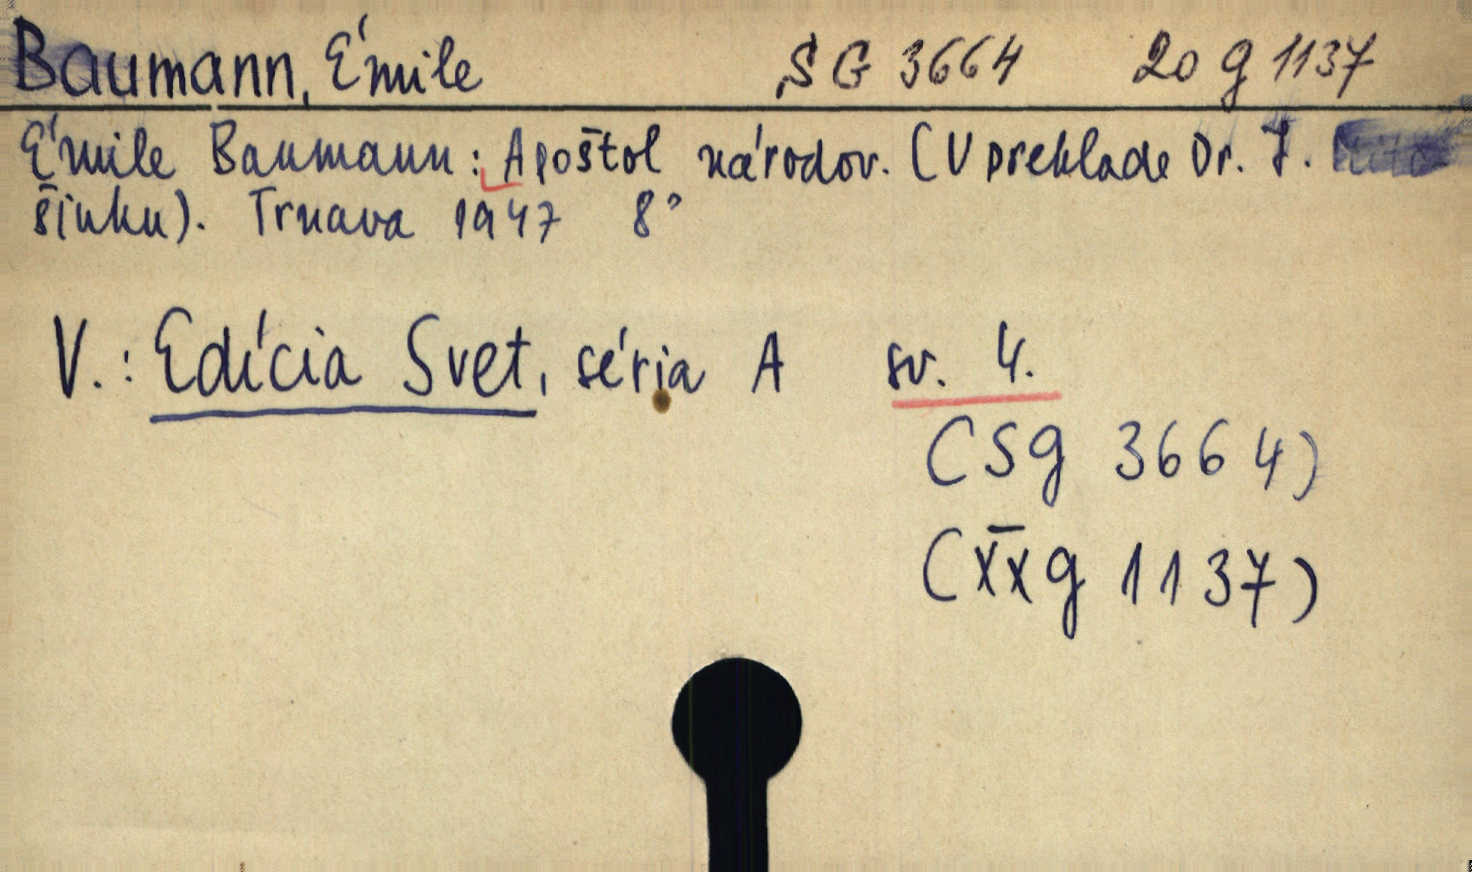 Baumann, Émile SG 3664 20 g 1137
Émile Baumann: Apoštol národov. (V preklade Dr. J.
šinku). Trnava 1947 8°
V.: Edícia Svet, séria A sv. 4.
(Sg 3664)
(XXg 1137)